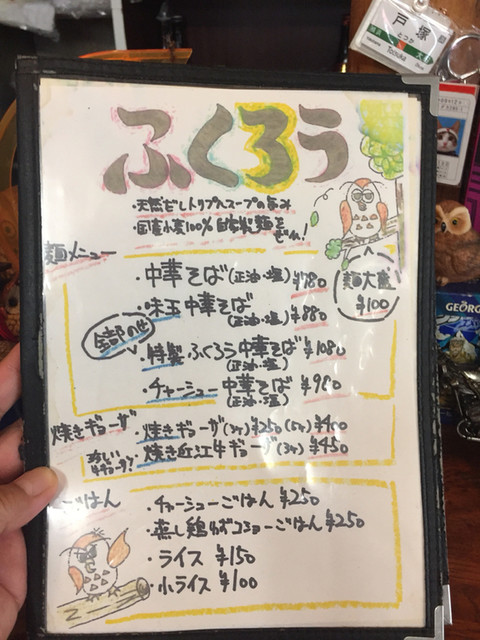 戸塚
とつか
Totsuka
ふくろう
・天然だしトリプルスープの旨み
・国産小麦100% 自家製麺をぜひ!
麺メニュー
・中華そば(正油・塩) ¥780
・味玉中華そば(正油・塩) ¥880
全部のせ
・特製ふくろう中華そば(正油・塩) ¥1080
・チャーシュー中華そば(正油・塩) ¥980
麺大盛
¥100
焼きギョーザ
焼きギョーザ(3ケ)¥250(5ケ)¥400
珍しい牛ギョーザ!
焼き近江牛ギョーザ(3ケ)¥450
ごはん
・チャーシューごはん ¥250
・蒸し鶏ゆずコショーごはん ¥250
・ライス ¥150
・小ライス ¥100
GEORG